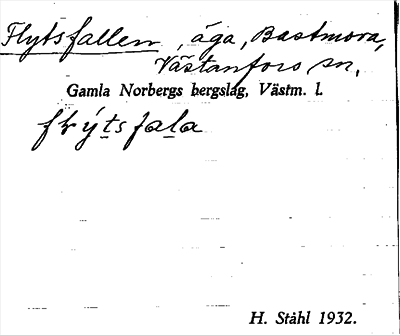 Flytsfallen, äga, Bastmora,
Västanfors sn.
Gamla Norbergs bergslag, Västm. l.
flýtsfala
H. Ståhl 1932.